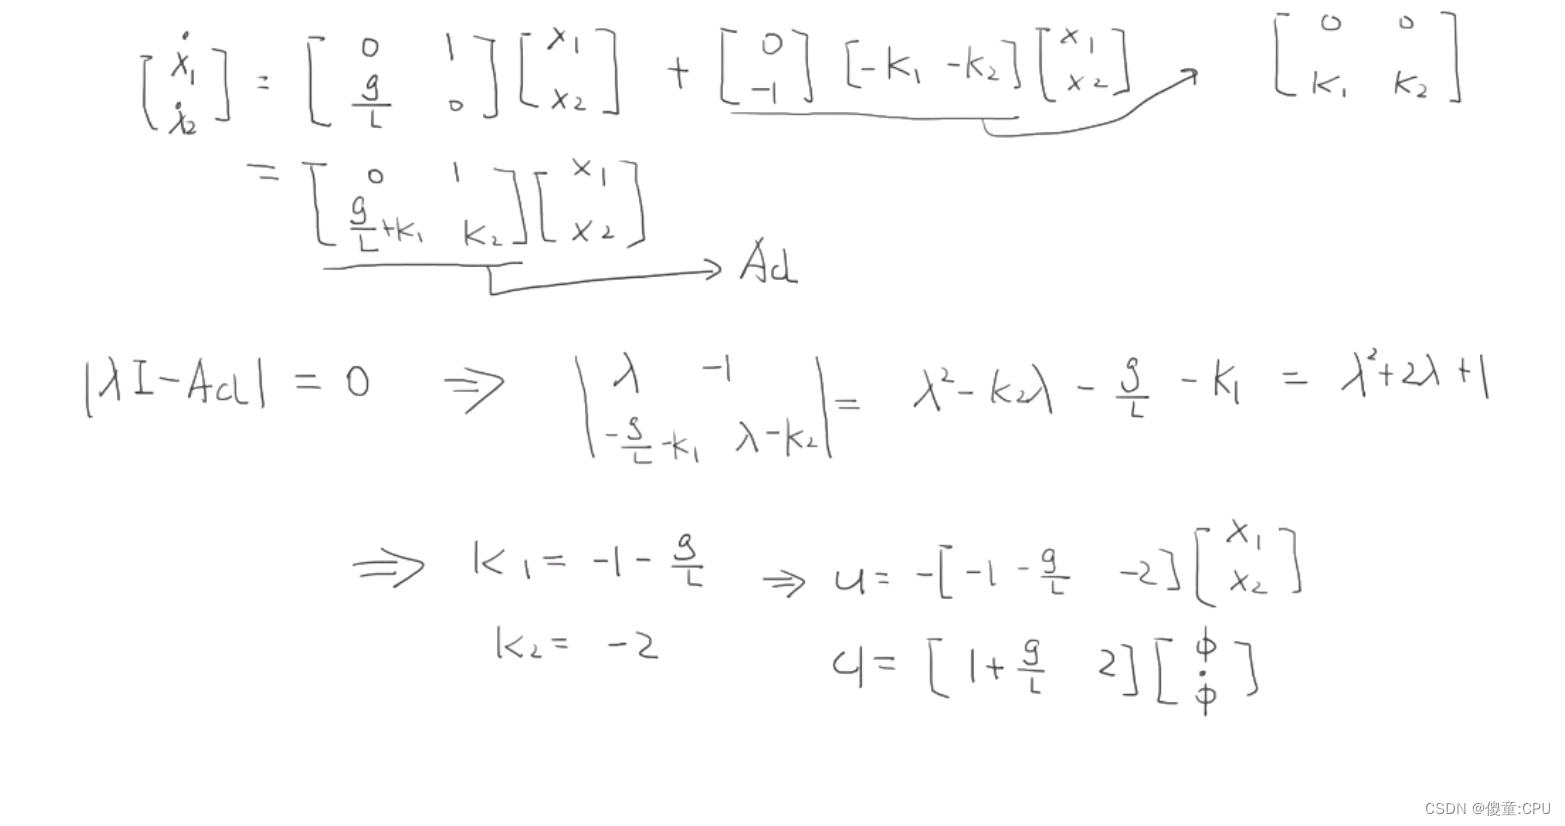 [ẋ₁ ẋ₂] = [0 1; g/L 0] [x₁ x₂] + [0 -1] [-k₁ -k₂] [x₁ x₂] → [0 0; k₁ k₂]
= [0 1; g/L+k₁ k₂] [x₁ x₂] → Acl
|λI-Acl| = 0 ⇒ |λ -1; -g/L-k₁ λ-k₂| = λ²-k₂λ-g/L-k₁ = λ²+2λ+1
⇒ k₁ = -1-g/L ⇒ u = -[-1-g/L -2] [x₁ x₂]
k₂ = -2 u = [1+g/L 2] [ϕ ϕ̇]
CSDN @傻童:CPU